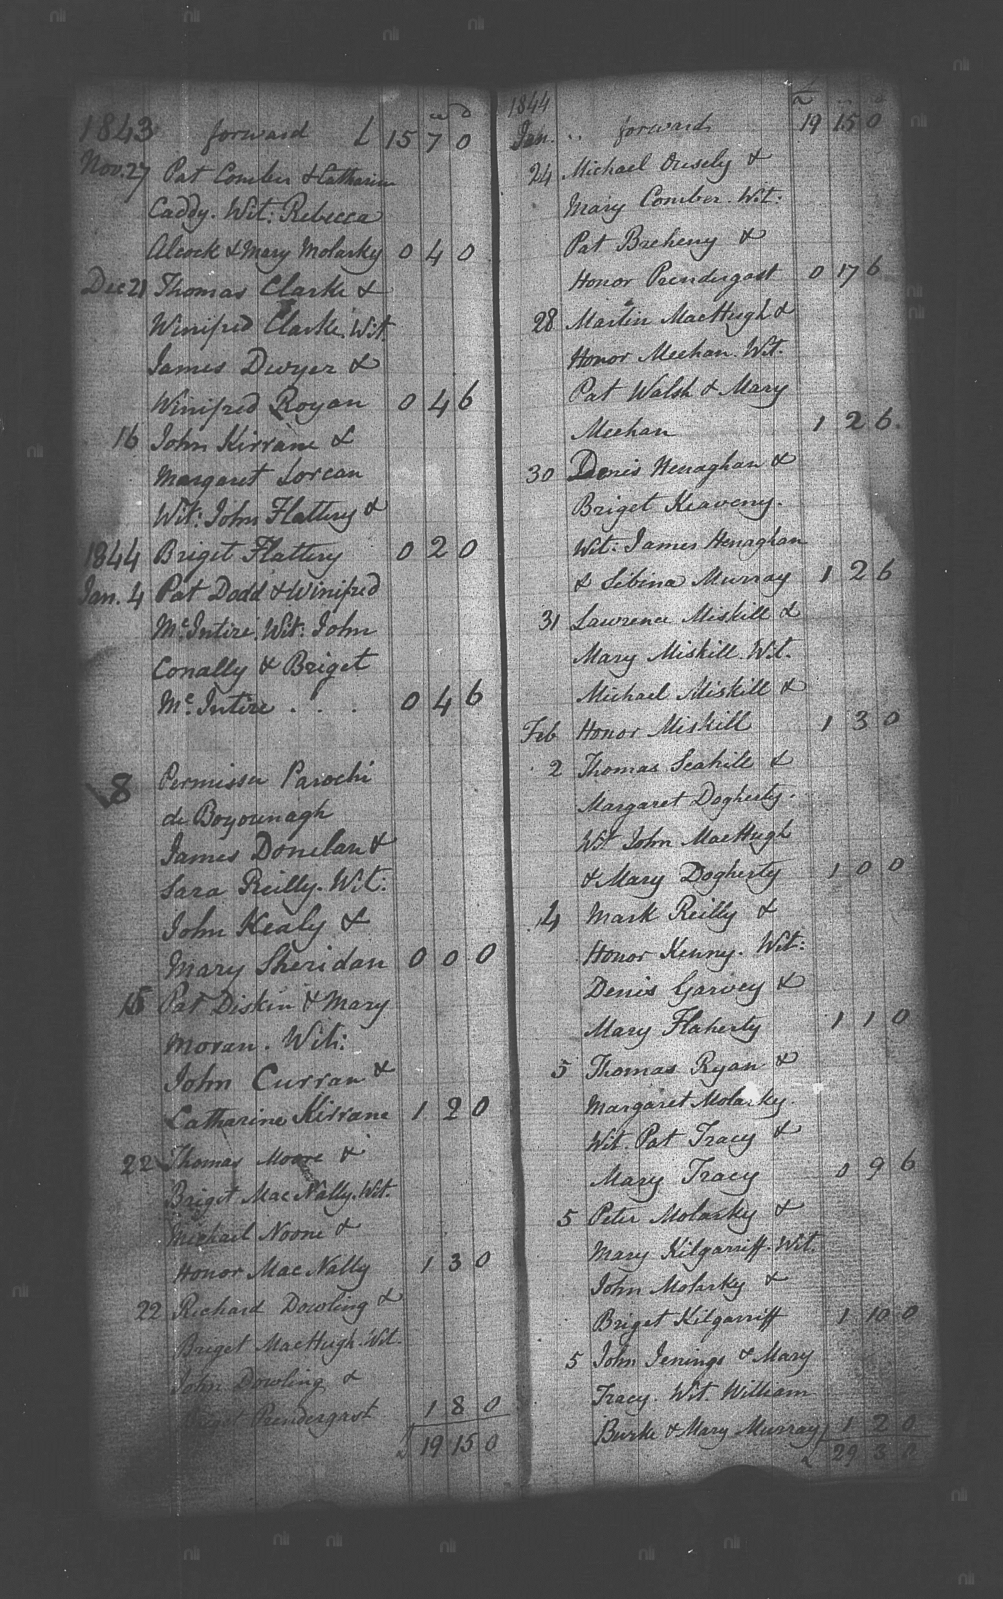 1843 forward L 15 7 0
Nov. 27 Pat Comber & Catharine
Caddy. Wit: Rebecca
Alcock & Mary Molarky 0 4 0
Dec 21 Thomas Clarke &
Winifred Clarke. Wit.
James Dwyer &
Winifred Royan 0 4 6
16 John Kirrane &
Margaret Lorcan
Wit: John Flattery &
1844 Briget Flattery 0 2 0
Jan. 4 Pat Dodd & Winifred
McIntire. Wit: John
Conally & Briget
McIntire . . . 0 4 6
8 Permissu Parochi
de Boyounagh
James Donelan &
Sara Reilly. Wit:
John Kealy &
Mary Sheridan 0 0 0
15 Pat Diskin & Mary
Moran. Wit:
John Curran &
Catharine Kirrane 1 2 0
22 Thomas Moore &
Briget MacNally. Wit.
Michael Noone &
Honor MacNally 1 3 0
22 Richard Dowling &
Briget MacHugh. Wit.
John Dowling &
Briget Prendergast 1 8 0
19 15 0
1844
Jan. .. forward 19 15 0
24 Michael Ousely &
Mary Comber. Wit:
Pat Breheny &
Honor Prendergast 0 17 6
28 Martin MacHugh &
Honor Meehan. Wit.
Pat Walsh & Mary
Meehan 1 2 6.
30 Denis Henaghan &
Briget Keaveny.
Wit: James Henaghan
& Sibina Murray 1 2 6
31 Lawrence Miskill &
Mary Miskill. Wit.
Michael Miskill &
Feb Honor Miskill 1 3 0
2 Thomas Scahill &
Margaret Dogherty.
Wit John MacHugh
& Mary Dogherty 1 0 0
4 Mark Reilly &
Honor Kenny. Wit:
Denis Garvey &
Mary Flaherty 1 1 0
5 Thomas Ryan &
Margaret Molarky
Wit. Pat Tracy &
Mary Tracy 0 9 6
5 Peter Molarky &
Mary Kilgarriff. Wit.
John Molarky &
Briget Kilgarriff 1 10 0
5 John Jenings & Mary
Tracy. Wit. William
Burke & Mary Murray 1 2 0
29 3 0